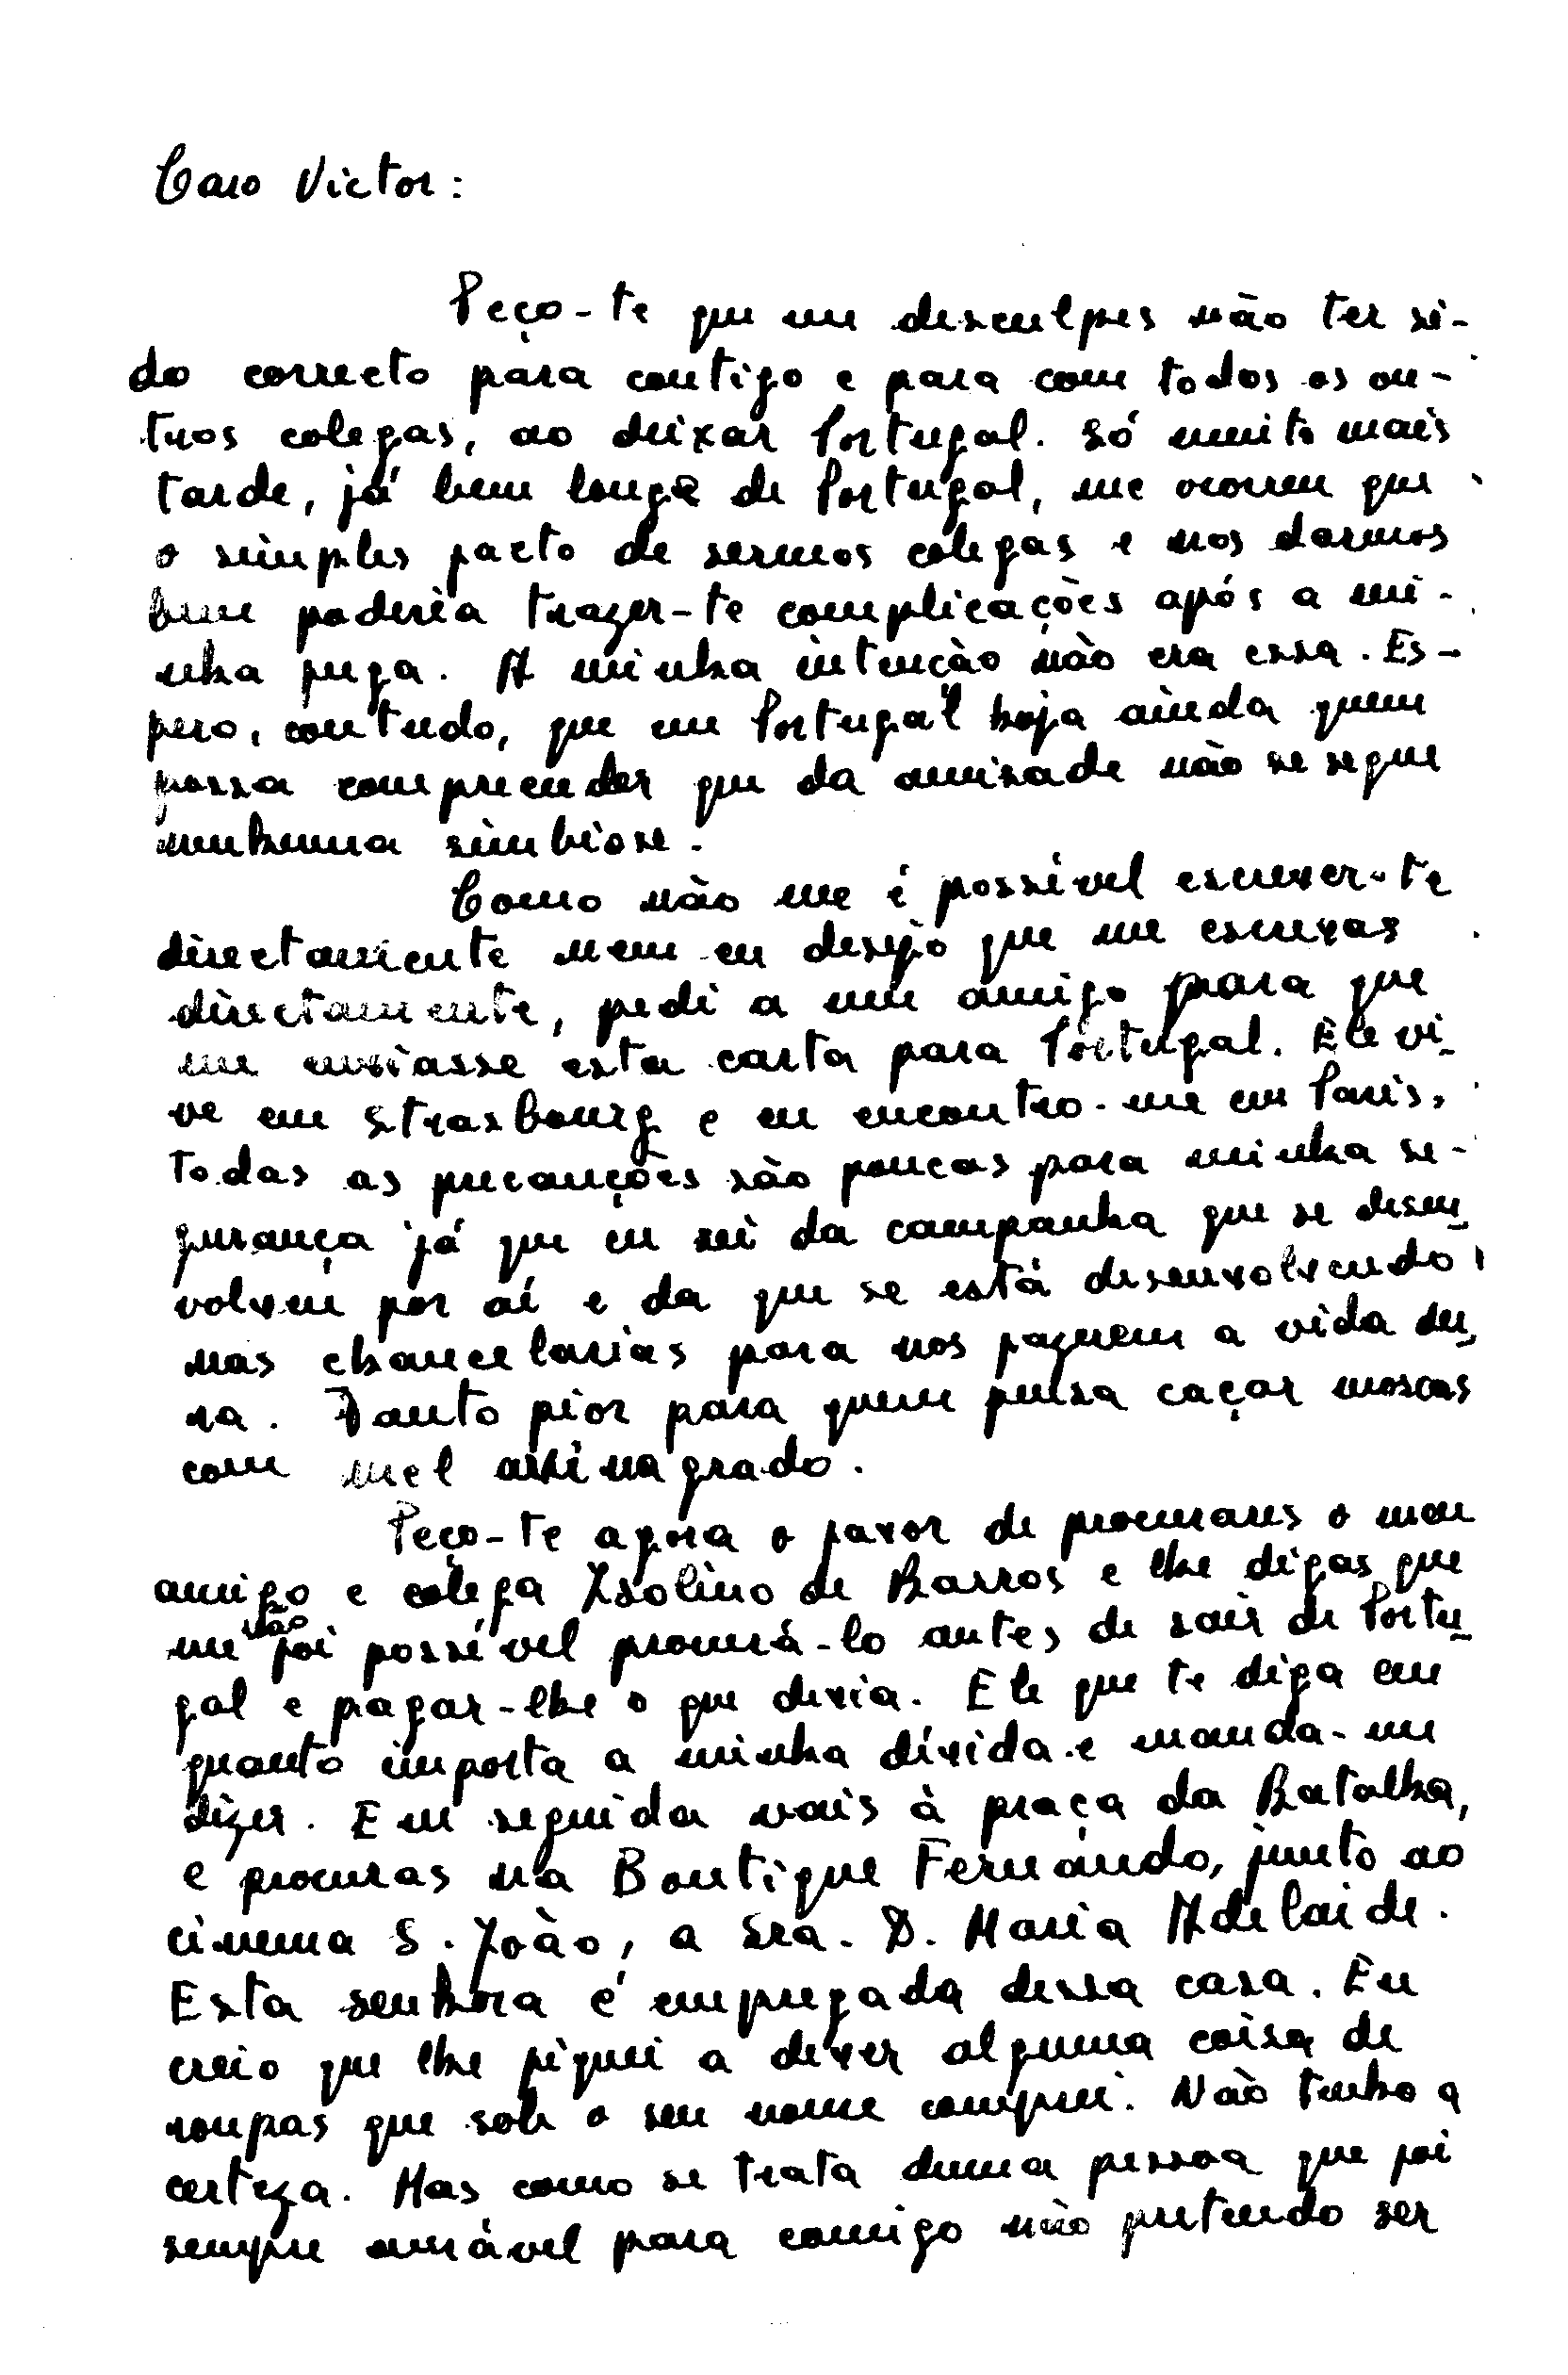 Caro Victor:
Peço-te que me desculpes não ter si-
do correcto para contigo e para com todos os ou-
tros colegas, ao deixar Portugal. Só muito mais
tarde, já bem longe de Portugal, me ocorreu que
o simples facto de sermos colegas e nos darmos
bem poderia trazer-te complicações após a mi-
nha fuga. A minha intenção não era essa. Es-
pero, contudo, que em Portugal haja ainda quem
possa compreender que da amizade não se segue
nenhuma simbiose.
Como não me é possível escrever-te
directamente nem eu desejo que me escrevas
directamente, pedi a um amigo para que
me enviasse esta carta para Portugal. Ele vi-
ve em Strasbourg e eu encontro-me em Paris.
Todas as precauções são poucas para minha se-
gurança já que eu sei da campanha que se desen-
volveu por aí e da que se está desenvolvendo
nas chancelarias para nos fazerem a vida du-
ra. Tanto pior para quem pensa caçar moscas
com mel avinagrado.
Peço-te agora o favor de procurares o meu
amigo e colega Isolino de Barros e lhe digas que
me não foi possível procurá-lo antes de sair de Portu-
gal e pagar-lhe o que devia. Ele que te diga em
quanto importa a minha dívida e manda-me
dizer. Em seguida vais à praça da Batalha,
e procuras na Boutique Fernando, junto ao
cinema S. João, a Sra. D. Maria Adelaide.
Esta senhora é empregada dessa casa. Eu
creio que lhe fiquei a dever alguma coisa de
roupas que sob o seu nome comprei. Não tenho a
certeza. Mas como se trata duma pessoa que foi
sempre amável para comigo não pretendo ser